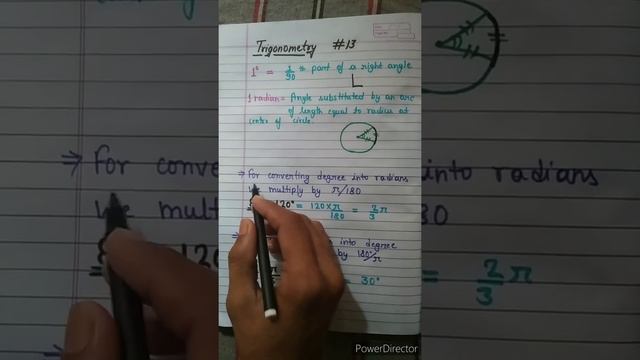 Trigonometry #13
1° = 1/90 th part of a right angle
1 radian = Angle substituted by an arc
of length equal to radius at
center of circle.
⇒ For converting degree into radians
we multiply by π/180
120° = 120 × π/180 = 2/3 π
into degree
by 180°/π
30°
PowerDirector